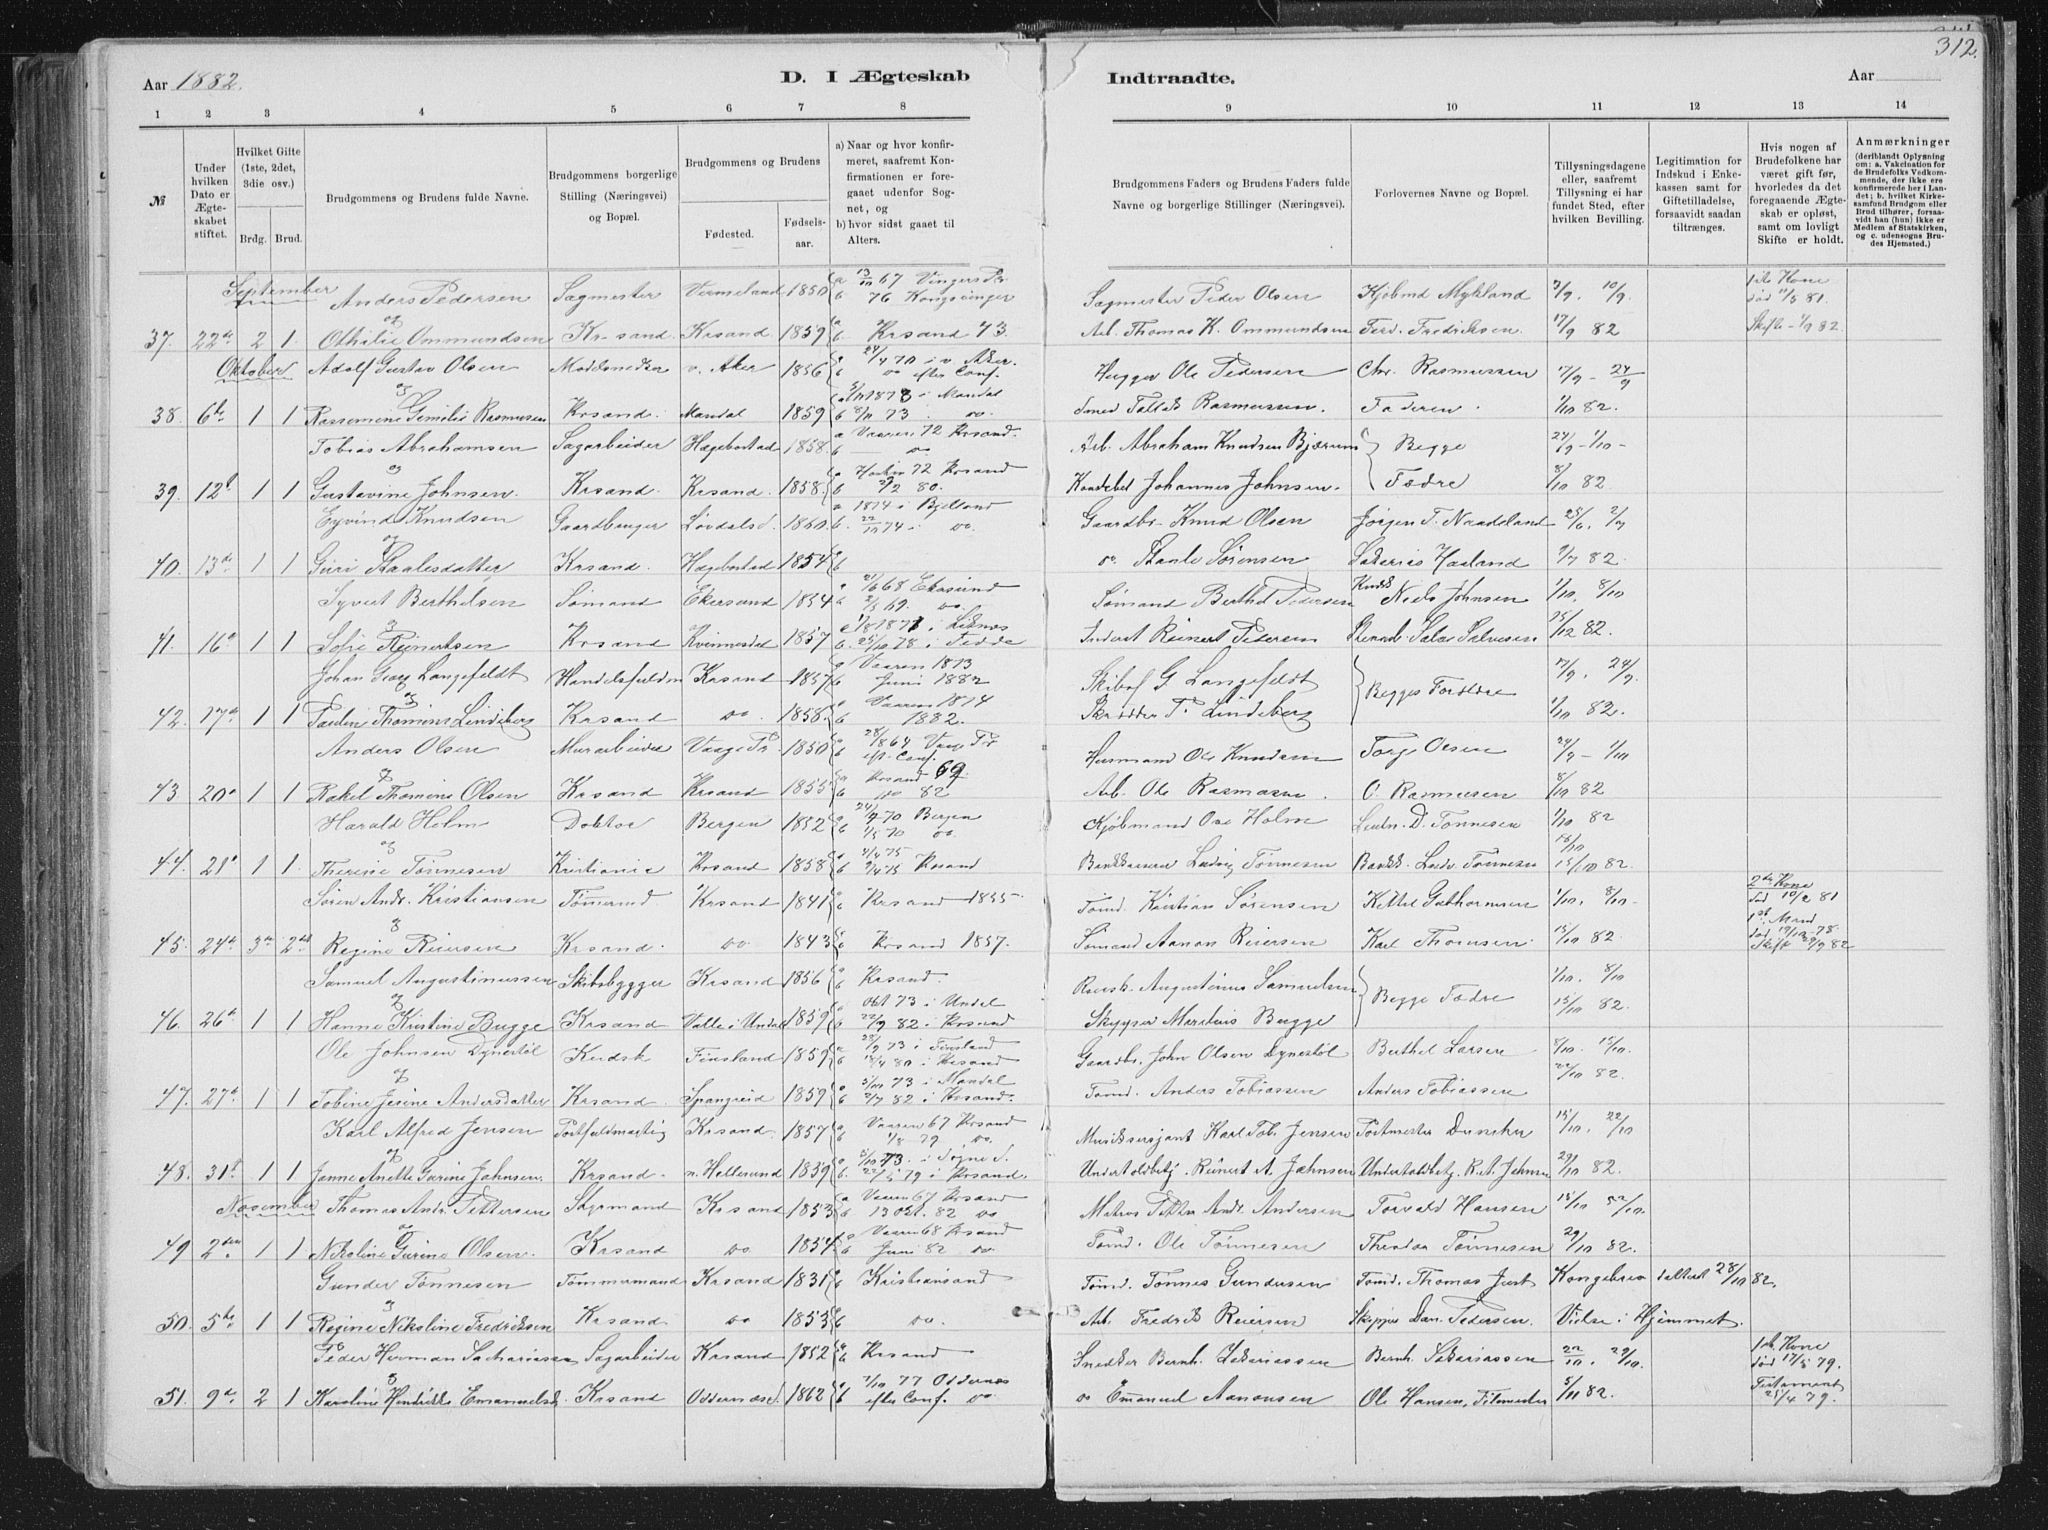 312.
Aar 1882.
D. I Ægteskab
Indtraadte.
Aar
1 2 3 4 5 6 7 8 9 10 11 12 13 14
№
Under hvilken Dato er Ægteskabet stiftet.
Hvilket Gifte (1ste, 2det, 3die osv.)
Brdg. Brud.
Brudgommens og Brudens fulde Navne.
Brudgommens borgerlige Stilling (Næringsvei) og Bopæl.
Brudgommens og Brudens
Fødested. Fødselsaar.
a) Naar og hvor konfirmeret, saafremt Konfirmationen er foregaaet udenfor Sognet, og
b) hvor sidst gaaet til Alters.
Brudgommens Faders og Brudens Faders fulde Navne og borgerlige Stillinger (Næringsvei).
Forlovernes Navne og Bopæl.
Tillysningsdagene eller, saafremt Tillysning ei har fundet Sted, efter hvilken Bevilling.
Legitimation for Indskud i Enkekassen samt for Giftetilladelse, forsaavidt saadan tiltrænges.
Hvis nogen af Brudefolkene har været gift før, hvorledes da det foregaaende Ægteskab er opløst, samt om lovligt Skifte er holdt.
Anmærkninger
(deriblandt Oplysning om: a. Vakcination for de Brudefolks Vedkommende, der ikke ere konfirmerede her i Landet; b. hvilket Kirkesamfund Brudgom eller Brud tilhører, forsaavidt han (hun) ikke er Medlem af Statskirken, og c. udensogns Brudes Hjemsted.)
September
Anders Pedersen Sagmester Vermeland 1850 a 13/10 67 Vingers Pr. b 76 Kongsvinger Sagmester Peder Olsen Kjøbmd Mykland 3/9. 10/9. 1ste Kone død 11/8 81.
37. 22de 2 1 Othilie Ommundsen Kr-sand Krsand 1859 b Krsand 73. Arb. Thomas K. Ommundsen Ferd. Fredriksen. 17/9 82 Skifte 1/9 82.
Oktober
Adolf Gustav Olsen v. Aker 1856 24/4 70 i v. Aker. do efter Conf. Ole Pedersen Chr. Rasmussen 17/9 - 24/9
38. 6te 1 1 Emilie Rasmusen Krsand. Mandal 1859 i Mandal b 8/11 73. do. Smed Rasmussen. Faderen. 1/10 82.
Tobias Abrahamsen Sagarbeider Hægebostad 1858. a Vaaren 72 Krsand. b do Arb. Abraham Knudsen Begge 24/9 - 1/10 -
39. 12te 1 1 Gustavine Johnsen. Krsand. Krsand. 1858. a Høsten 72 Krsand b 2/2 80. Johannes Johnsen. Fædre 8/10 82
Eyvind Knudsen Gaardbruger 1850. a 1874 i Bjelland b. 22/10 74 - i do. Gaardbr. Knud Olsen Jørgen T. Naadeland 25/6. 2/7
40. 13de 1 1 Guri Staalesdatter Krsand. Hægebostad 1854 do. Staale Sørensen Sakarias Haaland 9/7 82.
Syvert Berthelsen Sømand Ekersund 1854 21/6 68 Ekersund 2/5 69. do. Sømand Berthel Pedersen Niels Johnsen 1/10. 8/10
41. 16de 1 1 Sofie Reinertsen Krsand Kvinnesdal 1857 b. 25/10 78 i Fedde Reinert Pedersen Salve Salvesen 82.
Johan Georg Langefeldt Krsand 1857 a Vaaren 1873 b Juni 1882 G Langefeldt Begges Forældre 17/9. 24/9.
42. 17de 1 1 Thomine Lindeberg Krsand do. 1858. a Vaaren 1874 b 1882. Skrædder T. Lindeberg 1/10 82.
Anders Olsen Murarbeider Vaage Pr. 1850 28/1864 Vaage Pr eft. Conf. Husmand Ole Knudsen Torge Olsen 24/9 - 1/10
43 20de 1 1 Rakel Thomine Olsen Krsand Krsand 1855 a Krsand 69. b do 82 Arb. Ole Rasmussen. O. Rasmusen 8/10 82
Harald Holm Doktor Bergen 1852 70 Bergen 1/5 70 do. Kjøbmand Ove Holm D. Tønnesen 1/10 82
44. 21de 1 1 Therine Tønnesen Kristiania Krsand 1858 4/4 75 Krsand Ludvig Tønnesen Bankk. Ludv. Tønnesen 15/10 82.
Søren Andr. Kristiansen Krsand 1841 a Krsand 1855 - Tømd. Kristian Sørensen 1/10 8/10 - 2den Kone død 10/2 81
45. 24de 3die 2det Regine Reiersen Krsand. do. 1843 Krsand 1857. Sømand Aanon Reiersen Karl Thomsen. 15/10 82. 1st Mand død 19/12 - 78. Skift. 29/9 82
Samuel Augustinussen Skibsbygger Krsand 1856 Krsand. Augustinus Samuelsen Begge Fædre 1/10. 8/10
46. 26de 1 1 Hanne Kristine Bugge Krsand Valle i Undal 1859 Okt 73 i Undal b 22/9 82 i Krsand Skipper Martinius Bugge 15/10 82.
Ole Johnsen Dynestøl Kudsk Finsland 1859 73 i Finsland b 18/4 80 i Krsand Gaardbr. John Olsen Dynestøl Berthel Larsen 8/10. 15/10.
47. 27de 1 1 Tobine Jesine Andersdatter Krsand. Spangreid 1859 5/10 73 i Mandal b 2/7 82 i Krsand. Tømd. Anders Tobiassen Anders Tobiassen 22/10 82.
Karl Alfred Jensen Krsand. 1857 a Vaaren 67 Krsand b 1/8 79 do. Musiksersjant Karl Tob. Jensen Postmester Duncker 15/10. 22/10
48. 31te 1 1 Janne Anette Gurine Johnsen. Krsand. n. Hellesund 1859 a 5/10 73. i Søgne S. b 22/5 79 i Krsand. Undertoldbetj. Reinert A. Johnsen Undertoldbetj. R. A. Johnsen 29/10 82.
November
Thomas Andr. Pettersen Krsand 1853 a Vaaren 67 Krsand b 13 Okt. 82 do Andr. Andersen Torvald Hansen 15/10 22/10.
49 2den 1 1 Nikoline Gurine Olsen. Krsand do. 1854 Vaaren 68 Krsand Juni 82 do. Tømd. Ole Tønnesen Theodor Tønnesen 29/10 82.
Gunder Tønnesen Tømmermand Krsand 1831 Kristiansand Tømd. Tønnes Gundersen Tømd. Thomas Just Kongebrev dateret 28/10 82.
50. 5te 1 1 Regine Nikoline Fredriksen Krsand do 1853 do. Arb. Fredrik Reiersen Skipper Dan. Pedersen. Vielse i Hjemmet.
Peder Herman Sachariasen Sagarbeider Krsand 1852 Krsand Snedker Bernh. Zakariassen Bernh. Sakariassen 22/10. 29/10. 1st. Kone død 17/5 79.
51. 9de 2 1 Karoline Hendrikke Emanuelsd. Krsand Oddernæs 1862 a 7/10 77 Oddernæs b efter Conf. do. do Emanuel Aanonsen Ole Hansen, 5/11 82. Testament 25/4 79.